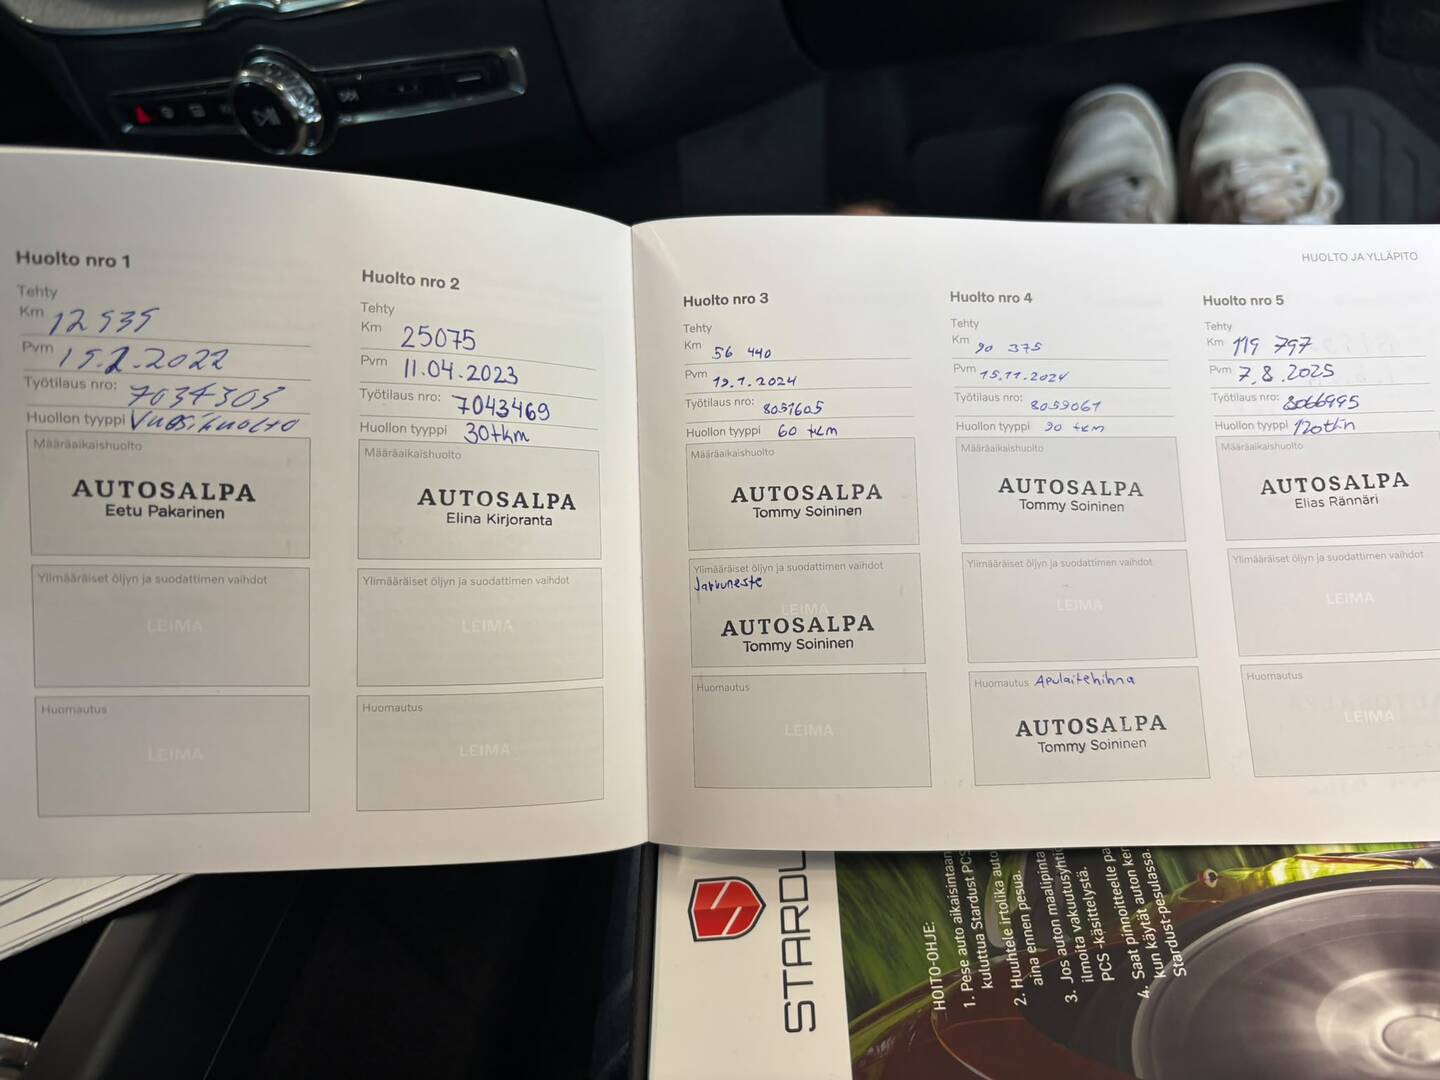 Huolto nro 1
Tehty
Km 12 535
Pvm 15.2.2022
Työtilaus nro: 7034303
Huollon tyyppi Vuosihuolto
Määräaikaishuolto
AUTOSALPA
Eetu Pakarinen
Ylimääräiset öljyn ja suodattimen vaihdot
LEIMA
Huomautus
LEIMA
Huolto nro 2
Tehty
Km 25075
Pvm 11.04.2023
Työtilaus nro: 7043469
Huollon tyyppi 30tkm
Määräaikaishuolto
AUTOSALPA
Elina Kirjoranta
Ylimääräiset öljyn ja suodattimen vaihdot
LEIMA
Huomautus
LEIMA
HUOLTO JA YLLÄPITO
Huolto nro 3
Tehty
Km 56 440
Pvm 19.1.2024
Työtilaus nro: 8051605
Huollon tyyppi 60 tkm
Määräaikaishuolto
AUTOSALPA
Tommy Soininen
Ylimääräiset öljyn ja suodattimen vaihdot
Jarruneste
LEIMA
AUTOSALPA
Tommy Soininen
Huomautus
LEIMA
Huolto nro 4
Tehty
Km 90 375
Pvm 15.11.2024
Työtilaus nro: 8059061
Huollon tyyppi 90 tkm
Määräaikaishuolto
AUTOSALPA
Tommy Soininen
Ylimääräiset öljyn ja suodattimen vaihdot
LEIMA
Huomautus Apulaitehihna
AUTOSALPA
Tommy Soininen
Huolto nro 5
Tehty
Km 119 797
Pvm 7.8.2025
Työtilaus nro: 8066995
Huollon tyyppi
Määräaikaishuolto
AUTOSALPA
Elias Rännäri
Ylimääräiset öljyn ja suodattimen vaihdot
LEIMA
Huomautus
LEIMA
HOITO-OHJE:
1. Pese auto aikaisintaan
kuluttua Stardust PCS
2. Huuhtele irtolika auto
aina ennen pesua.
3. Jos auton maalipinta
ilmoita vakuutusyhtiö
PCS -käsittelystä.
4. Saat pinnoitteelle pa
kun käytät auton ker
Stardust-pesulassa.